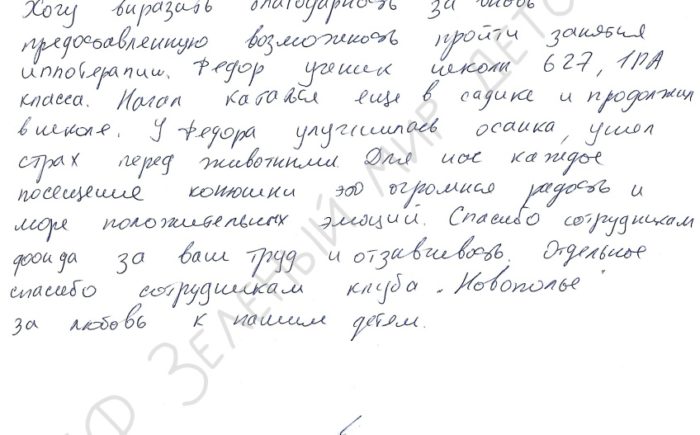 Хочу выразить благодарность за вновь
предоставленную возможность пройти занятия
иппотерапии. Федор ученик школы 627, 1ПА
класса. Начал кататься еще в садике и продолжил
в школе. У Федора улучшилась осанка, ушел
страх перед животными Для нас каждое
посещение конюшни это огромная радость и
море положительных эмоций. Спасибо сотрудникам
фонда за ваш труд и отзывчивость. Отдельное
спасибо сотрудникам клуба "Новополье"
за любовь к нашим детям.
Зеленый мир дето